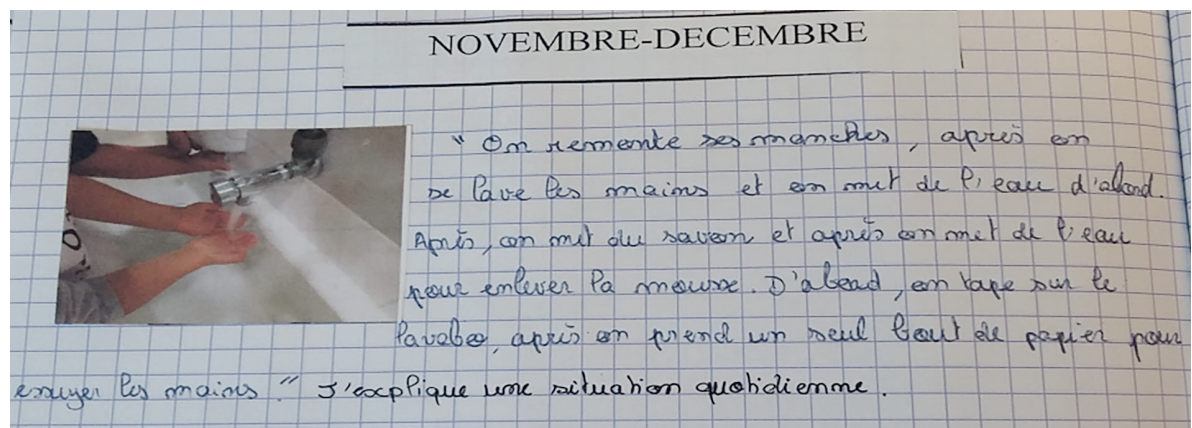 NOVEMBRE-DECEMBRE
" On remonte ses manches, après on
se lave les mains et on met de l'eau d'abord.
Après, on met du savon et après on met de l'eau
pour enlever la mousse. D'abord, on tape sur le
lavabo, après on prend un seul bout de papier pour
essuyer les mains." J'explique une situation quotidienne.